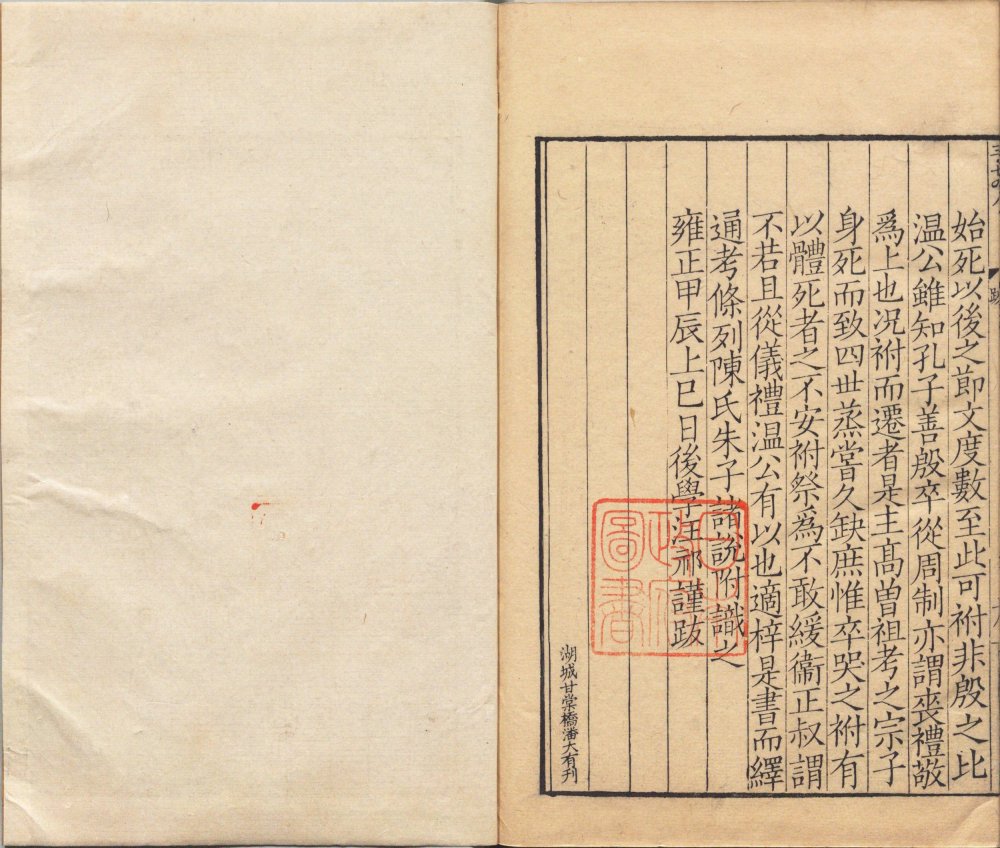 始死以後之節文度數至此可祔非殷之比
温公雖知孔子善殷卒從周制亦謂喪禮敬
爲上也况祔而遷者是主髙曽祖考之宗子
身死而致四世蒸嘗久缺庶惟卒哭之祔有
以體死者之不安祔祭為不敢緩衞正叔謂
不若且從儀禮温公有以也適梓是書而繹
通考條列陳氏朱子諸說附識之
雍正甲辰上巳日後學汪祁謹跋
湖城甘棠橋潘大有刊
圖書